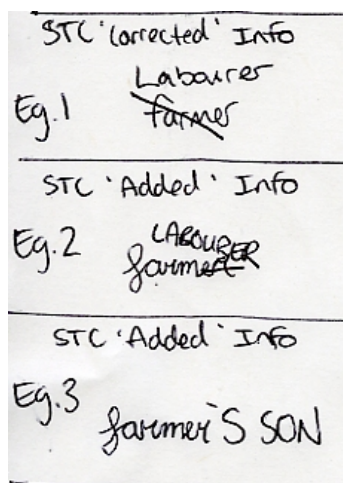 STC 'Corrected' Info
Labourer
Eg.1 farmer
STC 'Added' Info
LABOURER
Eg.2 farmer
STC 'Added' Info
Eg.3 farmer'S SON